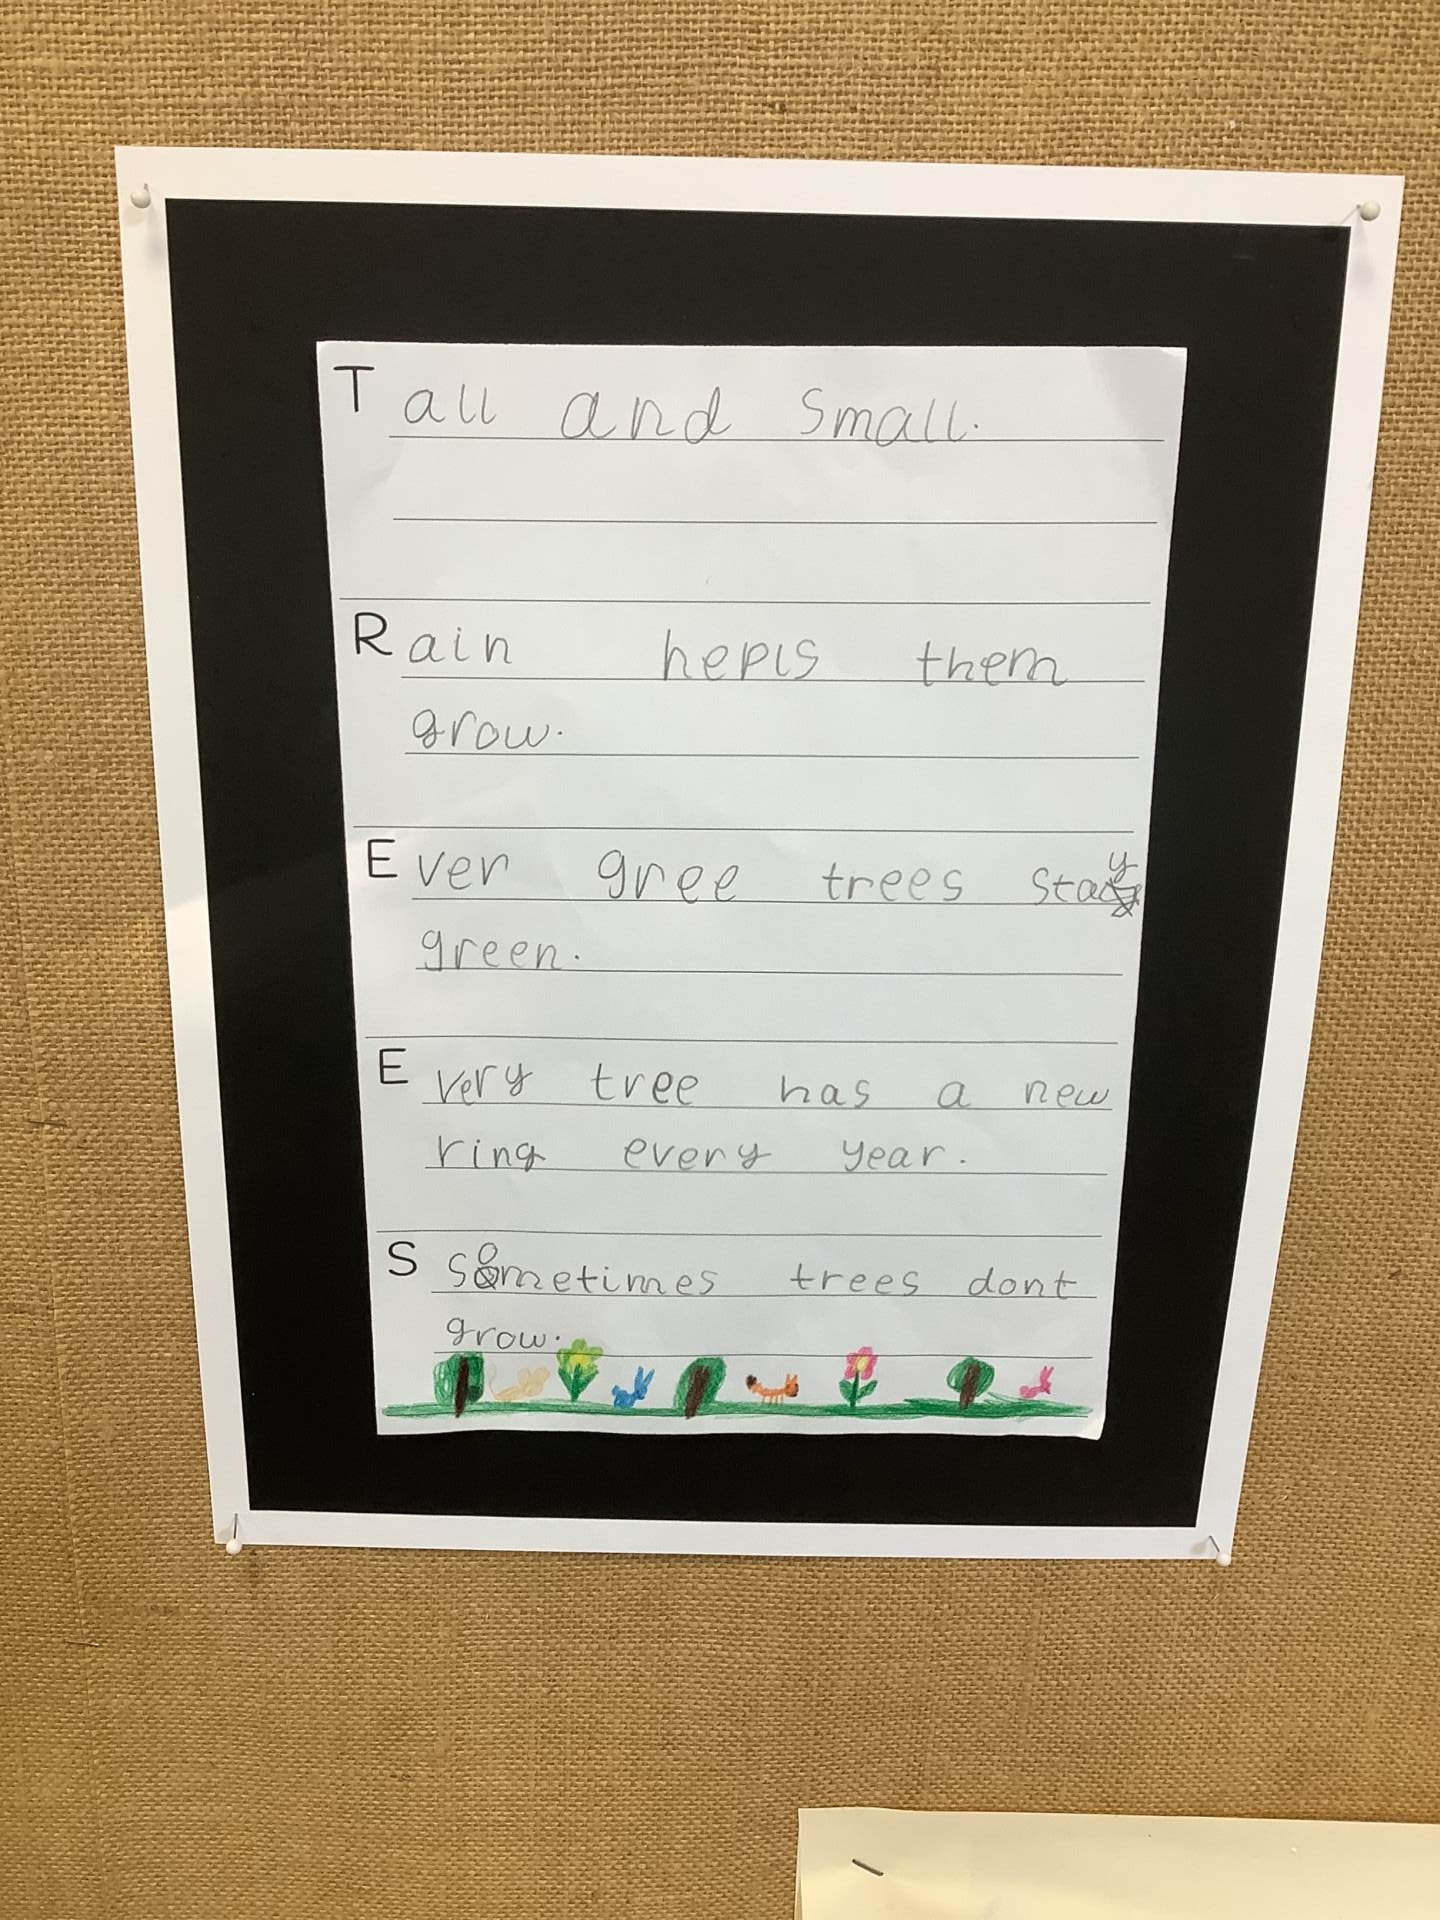 Tall and small.
Rain hepls them
grow.
Ever gree trees stay
green.
Every tree has a new
ring every year.
S Sometimes trees dont
grow.